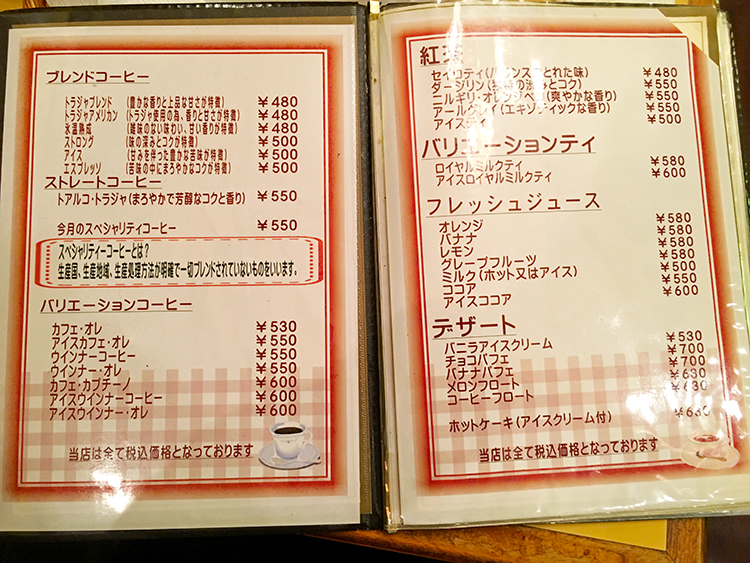 ブレンドコーヒー
トラジャブレンド (豊かな香りと上品な甘さが特徴) ¥480
トラジャアメリカン (トラジャ使用の為、香りと甘さが特徴) ¥480
氷温熟成 (雑味のない味わい、甘い香りが特徴) ¥480
ストロング (味の深みとコクが特徴) ¥500
アイス (甘みを伴った豊かな苦味が特徴) ¥500
エスプレッソ (苦味の中にまろやかなコクが特徴) ¥500
ストレートコーヒー
トアルコ・トラジャ(まろやかで芳醇なコクと香り) ¥550
今月のスペシャリティコーヒー ¥550
スペシャリティーコーヒーとは?
生産国、生産地域、生産処理方法が明確で一切ブレンドされていないものをいいます。
バリエーションコーヒー
カフェ・オレ ¥530
アイスカフェ・オレ ¥550
ウインナーコーヒー ¥550
ウインナー・オレ ¥550
カフェ・カプチーノ ¥600
アイスウインナーコーヒー ¥600
アイスウインナー・オレ ¥600
当店は全て税込価格となっております
紅茶
セイロティ(バランスのとれた味) ¥480
ダージリン( ¥550
ニルギリ・オレンジペ (爽やかな香り) ¥550
アールグレイ(エキゾティックな香り) ¥550
アイスティ ¥500
バリエーションティ
ロイヤルミルクティ ¥580
アイスロイヤルミルクティ ¥600
フレッシュジュース
オレンジ ¥580
バナナ ¥580
レモン ¥580
グレープフルーツ ¥580
ミルク(ホット又はアイス) ¥500
ココア ¥550
アイスココア ¥600
デザート
バニラアイスクリーム ¥530
チョコパフェ ¥700
バナナパフェ ¥700
メロンフロート ¥630
コーヒーフロート ¥630
ホットケーキ(アイスクリーム付)
当店は全て税込価格となっております